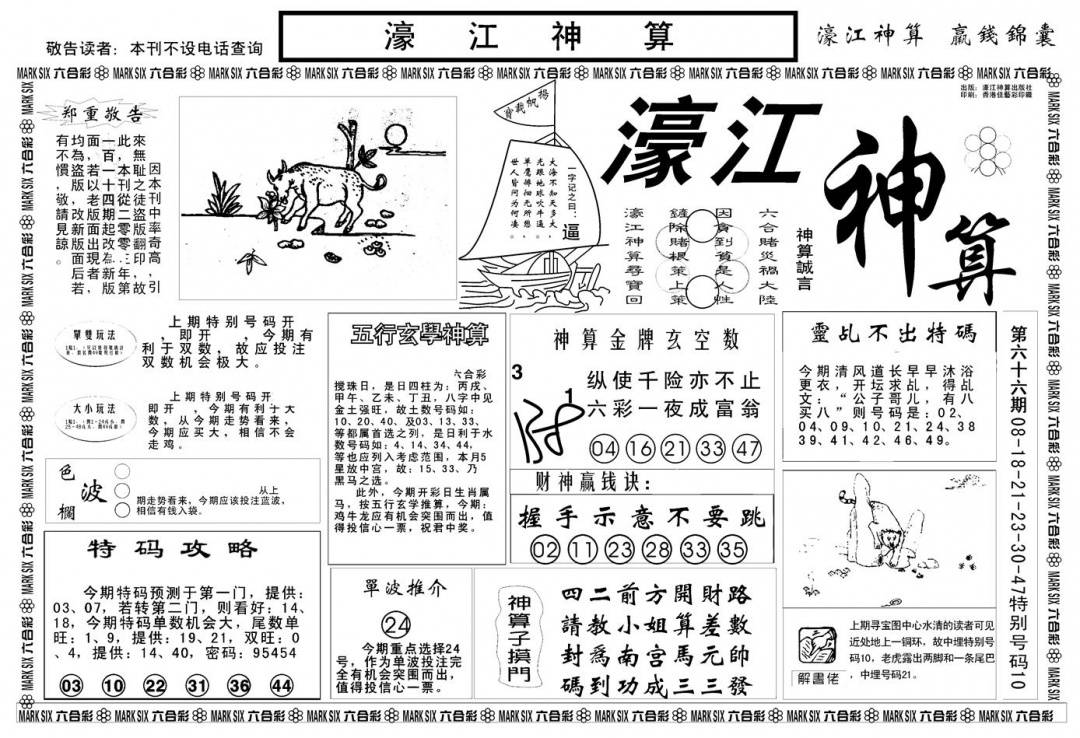 敬告读者：本刊不设电话查询
濠江神算
濠江神算 贏錢錦囊
MARK SIX 六合彩 MARK SIX 六合彩 MARK SIX 六合彩 MARK SIX 六合彩 MARK SIX 六合彩 MARK SIX 六合彩 MARK SIX 六合彩 MARK SIX 六合彩 MARK SIX 六合彩 MARK SIX 六合彩 MARK SIX 六合彩
出版：濠江神算出版社
印刷：香港佳藝彩印職
郑重敬告
有均面一此來
不為，百，無
慣盜若一本耻因
，版以十刊之本
敬，老四從徒刊
請改版期二盜中
見新面起零版率
諒版出改零翻奇
。面現為二三印高
后者新年，，
若，版第故引
揚帆我曾
一字记之曰：逼
大海不知天多大
无眼地球吹牛逼
单鹰拼细无所愁
世人皆问为何凄
濠江神算
六合賭災禍大陸
因貪到貧是人性
鏟除賭根萊上萊
濠江神算尋寶回
神算誠言
單雙玩法
上期特别号码开
，即开 ，今期有
利于双数，故应投注
双数机会极大。
大小玩法
上期特别号码开
即开 ，今期有利于大
数，从今期走势看来，
今期应买大，相信不会
走鸡。
色波欄
从上
期走势看来，今期应该投注蓝波，
相信有钱入袋。
五行玄學神算
六合彩
搅珠日，是日四柱为：丙戌、
甲午、乙未、丁丑，八字中见
金土强旺，故土数号码如：
10、20、40、及03、13、33、
等都属首选之列，是日利于水
数号码如：4、14、34、44，
等也应列入考虑范围，本月5
星放中宫，故：15、33、乃
黑马之选。
此外，今期开彩日生肖属
马，按五行玄学推算，今期：
鸡牛龙应有机会突围而出，值
得投信心一票，祝君中奖。
神算金牌玄空数
3
1
纵使千险亦不止
六彩一夜成富翁
04 16 21 33 47
财神赢钱诀：
握手示意不要跳
02 11 23 28 33 35
靈乩不出特碼
今期清风道长早早沐浴
更衣，开坛求乩，得乩
文：“公子哥儿，有八
买八”则号码是：02、
04、09、10、21、24、38
39、41、42、46、49。
第六十六期08-18-21-23-30-47特别号码10
特码攻略
今期特码预测于第一门，提供：
03、07，若转第二门，则看好：14、
18，今期特码单数机会大，尾数单
旺：1、9，提供：19、21，双旺：0
、4，提供：14、40，密码：95454
03 10 22 31 36 44
單波推介
24
今期重点选择24
号，作为单波投注完
全有机会突围而出，
值得投信心一票。
神算子摸門
四二前方開財路
請教小姐算差數
封為南宮馬元帥
碼到功成三三發
解畫佬
上期寻宝图中心水清的读者可见
近处地上一铜环，故中埋特别号
码10，老虎露出两脚和一条尾巴
，中埋号码21。
MARK SIX 六合彩 MARK SIX 六合彩 MARK SIX 六合彩 MARK SIX 六合彩 MARK SIX 六合彩 MARK SIX 六合彩 MARK SIX 六合彩 MARK SIX 六合彩 MARK SIX 六合彩 MARK SIX 六合彩 MARK SIX 六合彩